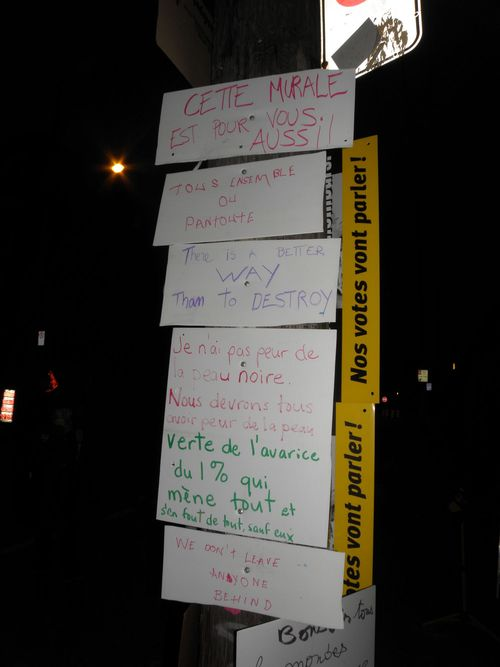 CETTE MURALE
EST POUR VOUS.
AUSSI!!
TOUS ENSEMBLE
OU
PANTOUTE
There is a BETTER
WAY
Than to DESTROY
Je n'ai pas peur de
la peau noire.
Nous devrons tous
avoir peur de la peau
verte de l'avarice
du 1% qui
mène tout et
s'en fout de tout, sauf eux
WE DON'T LEAVE
ANYONE
BEHIND
Nos votes vont parler!
votes vont parler!
tous
mondes